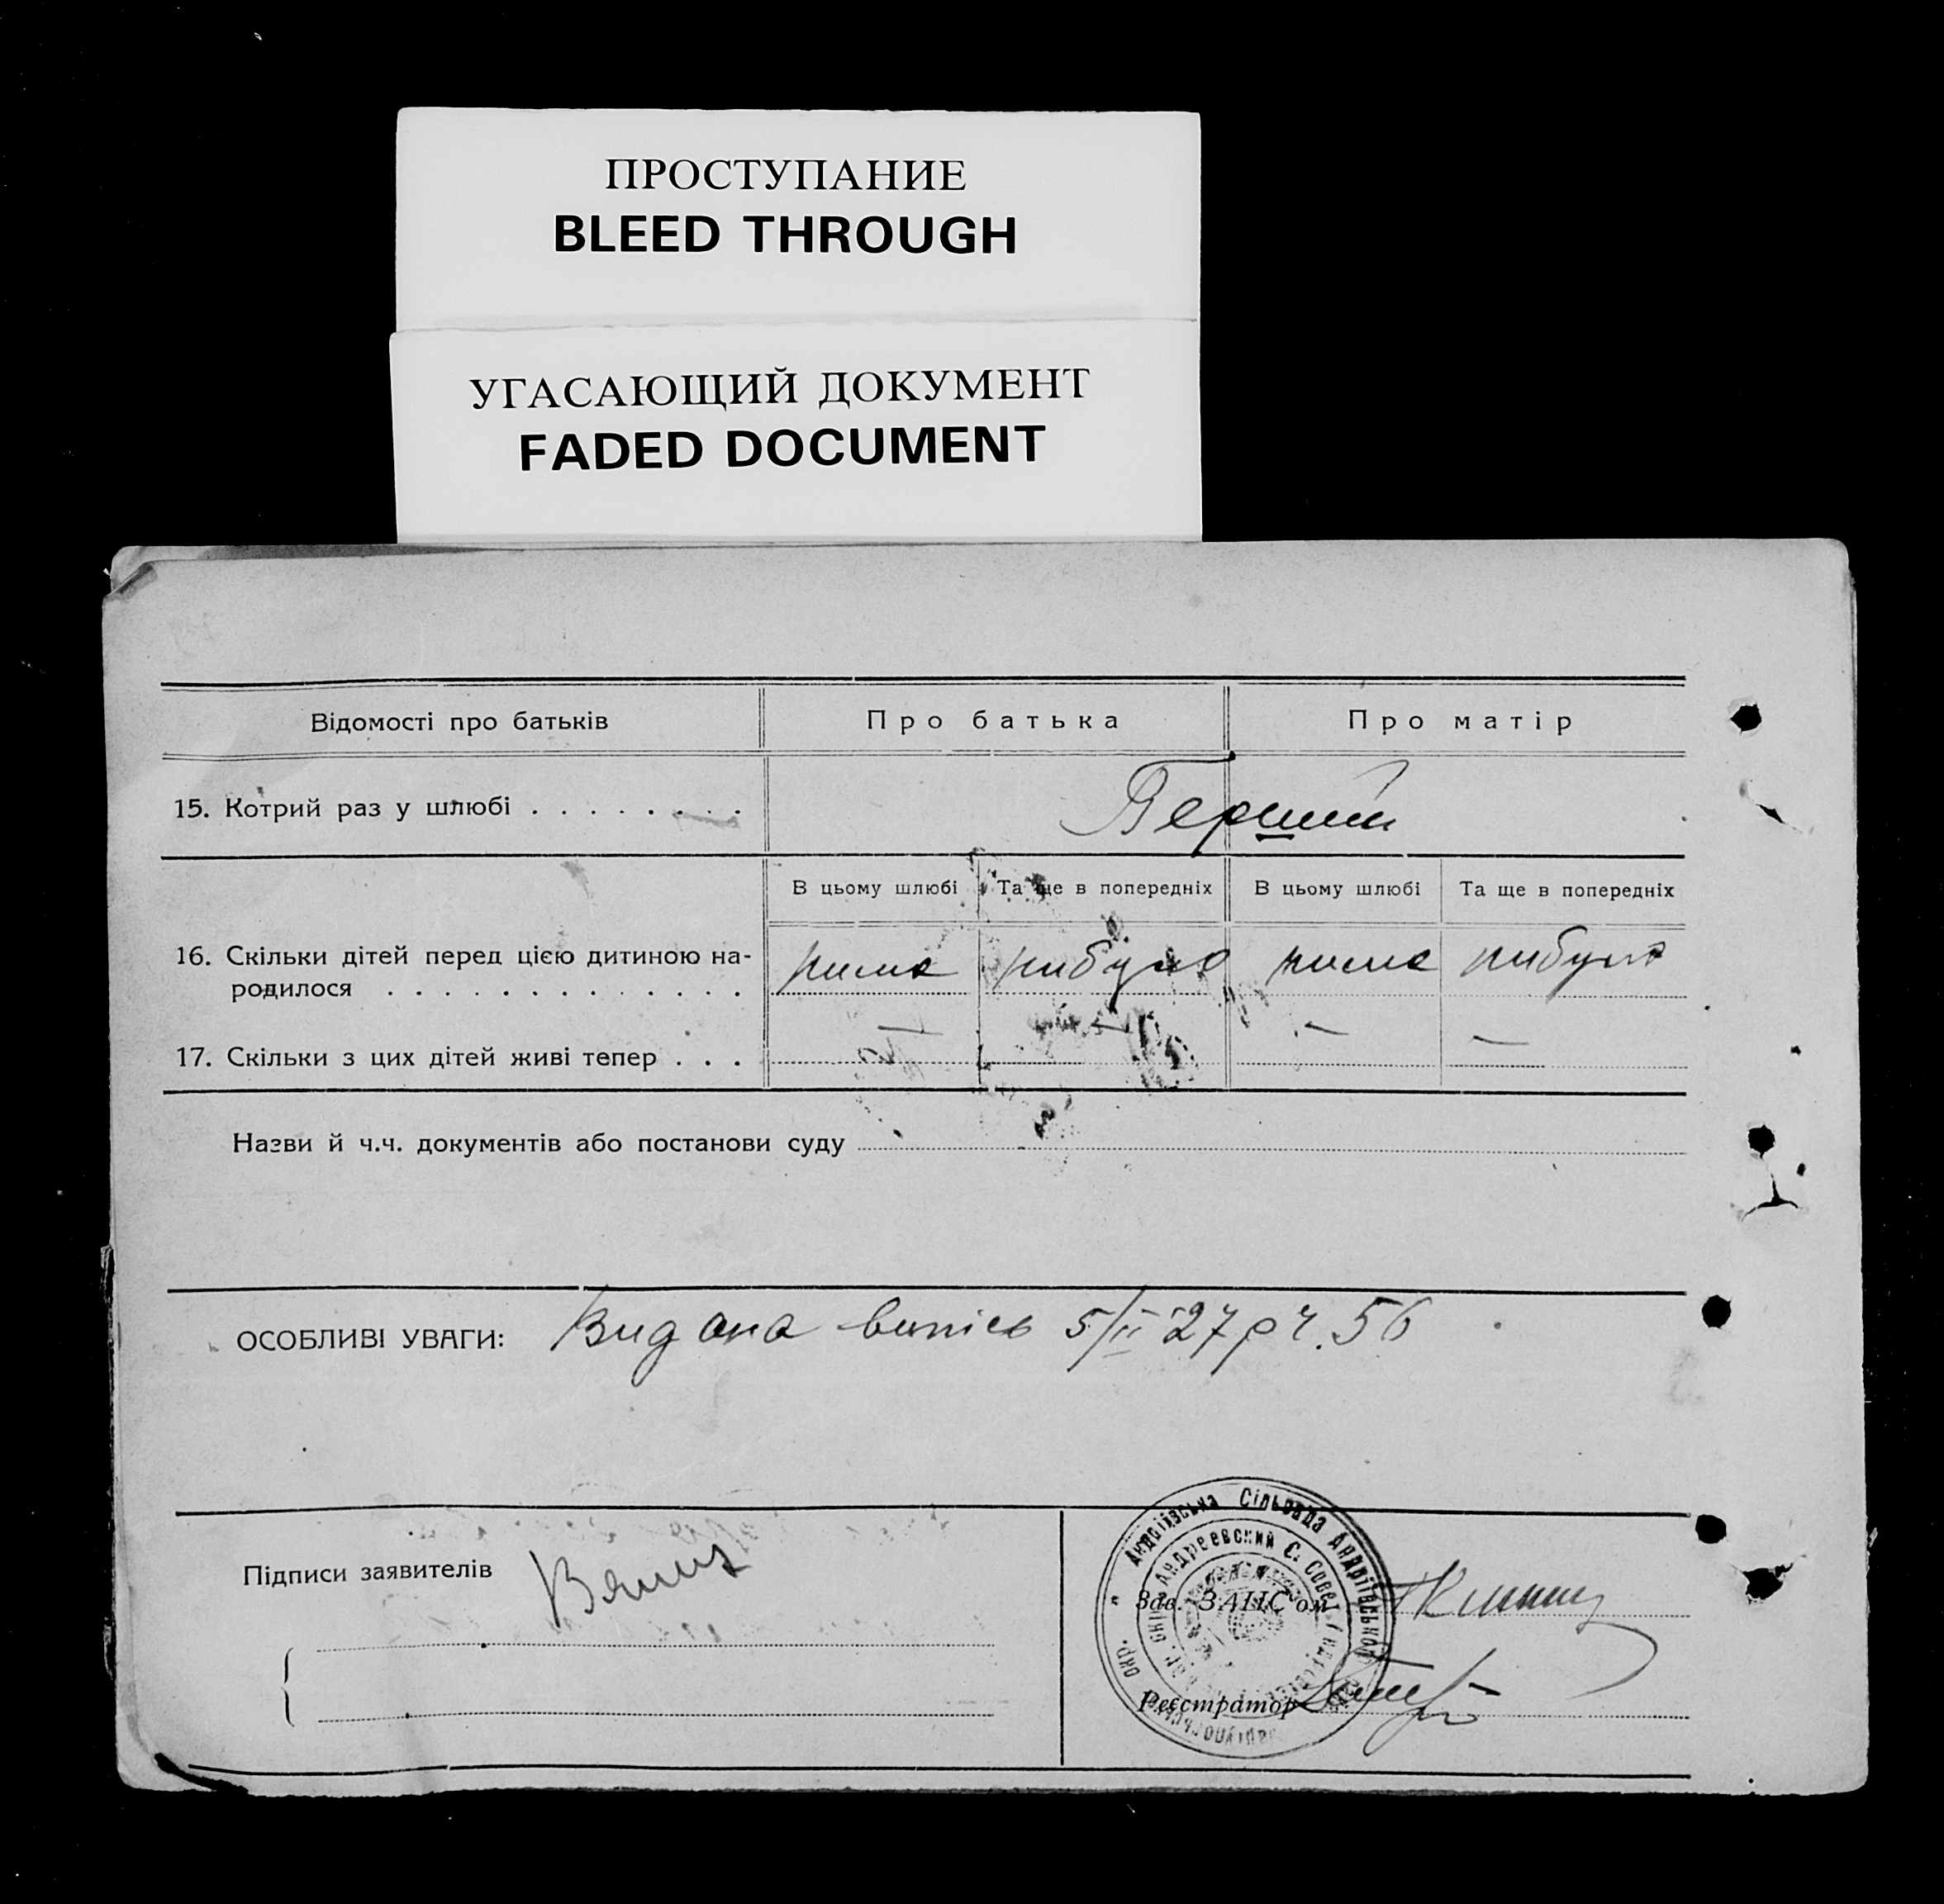 ПРОСТУПАНИЕ
BLEED THROUGH
УГАСАЮЩИЙ ДОКУМЕНТ
FADED DOCUMENT
Відомості про батьків Про батька Про матір
15. Котрий раз у шлюбі . . . . . . . . Перший
В цьому шлюбі Та ще в попередніх В цьому шлюбі Та ще в попередніх
16. Скільки дітей перед цією дитиною на-
родилося . . . . . . . . . . . . . нима нибуло нима нибуло
17. Скільки з цих дітей живі тепер . . . — — — —
Назви й ч.ч. документів або постанови суду
ОСОБЛИВІ УВАГИ: Видана випись 5/II 27 р ч. 56
Андріївська Сільрада Андріївської
Андреевский С. Совет
окр.
Підписи заявителів
Зав. ЗАГС'ом
Реєстратор